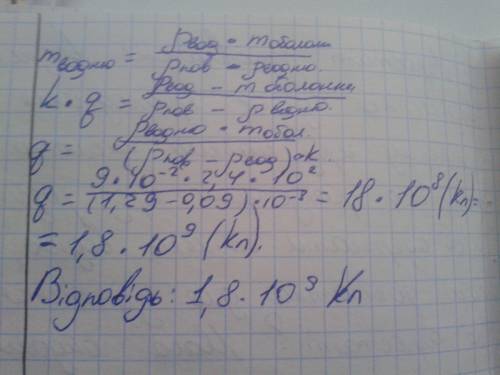 m водню = ρвод · m оболонки / ρпов - ρводню.
k · q = ρвод - m оболонки / ρпов - ρ водню.
q = ρводню · m обол. / (ρпов - ρвод) · k.
q = 9 · 10⁻² · 2,4 · 10² / (1,29 - 0,09) · 10⁻⁸ = 18 · 10⁸ (Кл) =
= 1,8 · 10⁹ (Кл).
Відповідь: 1,8 · 10⁹ Кл